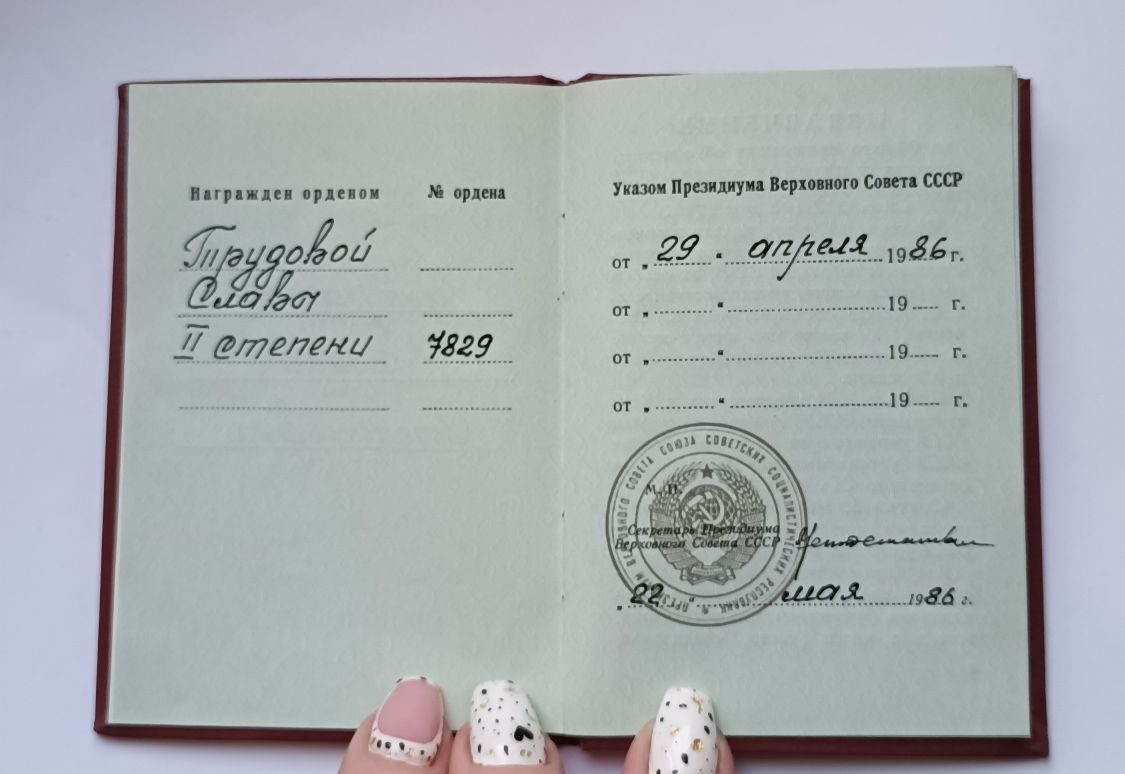 Награжден орденом
№ ордена
Трудовой
Славы
II степени
7829
Указом Президиума Верховного Совета СССР
от „29“ апреля 1986 г.
от „ “ 19 г.
от „ “ 19 г.
от „ “ 19 г.
ПРЕЗИДИУМ ВЕРХОВНОГО СОВЕТА СОЮЗА СОВЕТСКИХ СОЦИАЛИСТИЧЕСКИХ РЕСПУБЛИК
М. П.
Секретарь Президиума
Верховного Совета СССР
„22“ мая 1986 г.